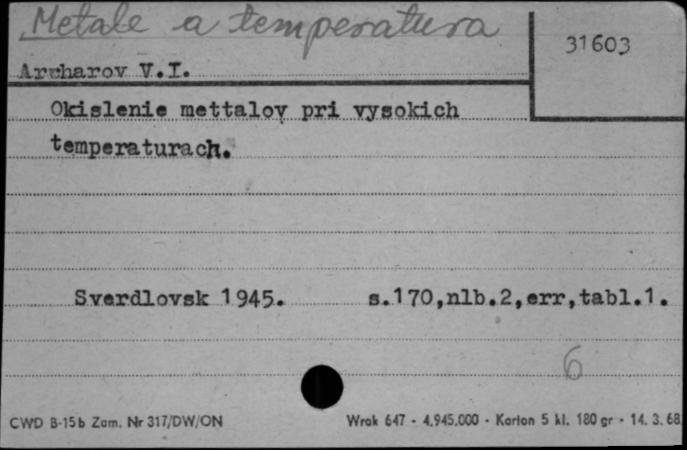 Metale a temperatura
31603
Archarov V.I.
Okislenie mettalov pri vysokich
temperaturach.
Sverdlovsk 1945. s.170,nlb.2,err,tabl.1.
6
CWD B-15b Zam. Nr 317/DW/ON Wrak 647 - 4.945.000 - Karton 5 kl. 180 gr - 14. 3. 68